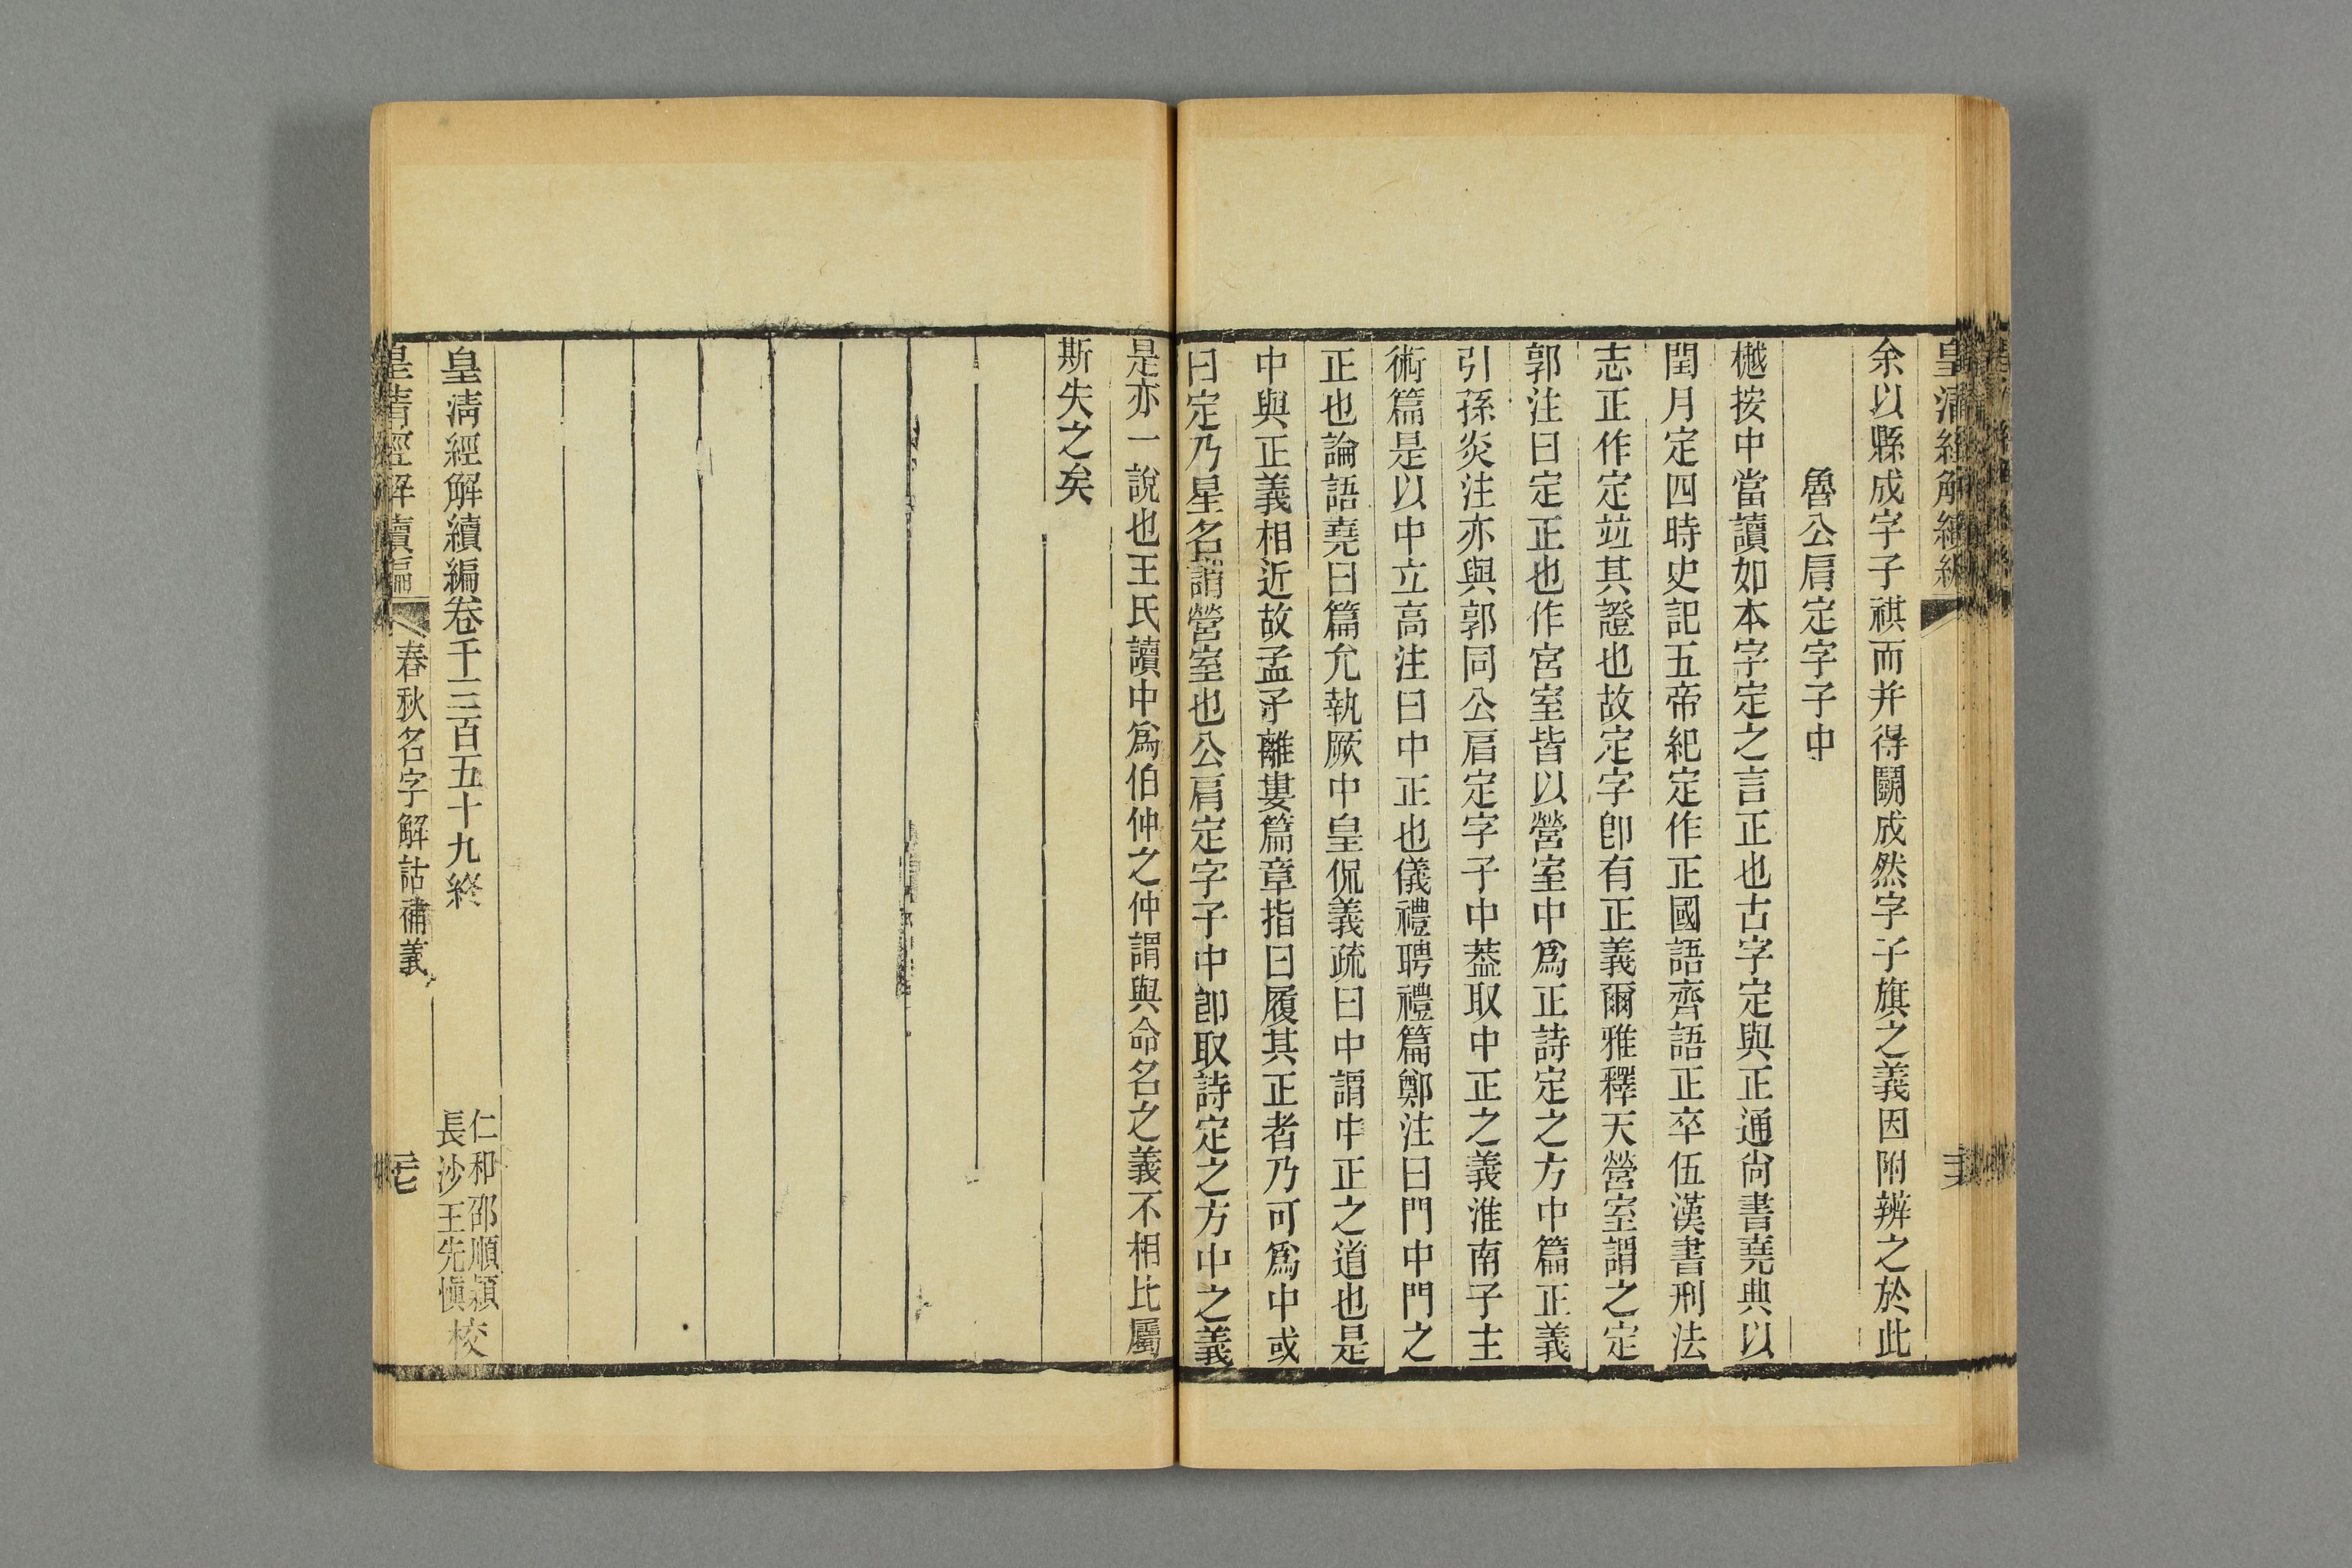 皇清經解續編
余以縣成字子祺而并得鬭成然字子旗之義因附辨之於此
魯公肩定字子中
樾按中當讀如本字定之言正也古字定與正通尙書堯典以
閏月定四時史記五帝紀定作正國語齊語正卒伍漢書刑法
志正作定竝其證也故定字卽有正義爾雅釋天營室謂之定
郭注曰定正也作宮室皆以營室中爲正詩定之方中篇正義
引孫炎注亦與郭同公肩定字子中葢取中正之義淮南子主
術篇是以中立高注曰中正也儀禮聘禮篇鄭注曰門中門之
正也論語堯曰篇允執厥中皇侃義疏曰中謂中正之道也是
中與正義相近故孟子離婁篇章指曰履其正者乃可爲中或
曰定乃星名謂營室也公肩定字子中卽取詩定之方中之義
是亦一說也王氏讀中爲伯仲之仲謂與命名之義不相比屬
斯失之矣
皇淸經解續編卷千三百五十九終
仁和邵順穎
長沙王先愼
校
皇清經解續編
春秋名字解詁補義